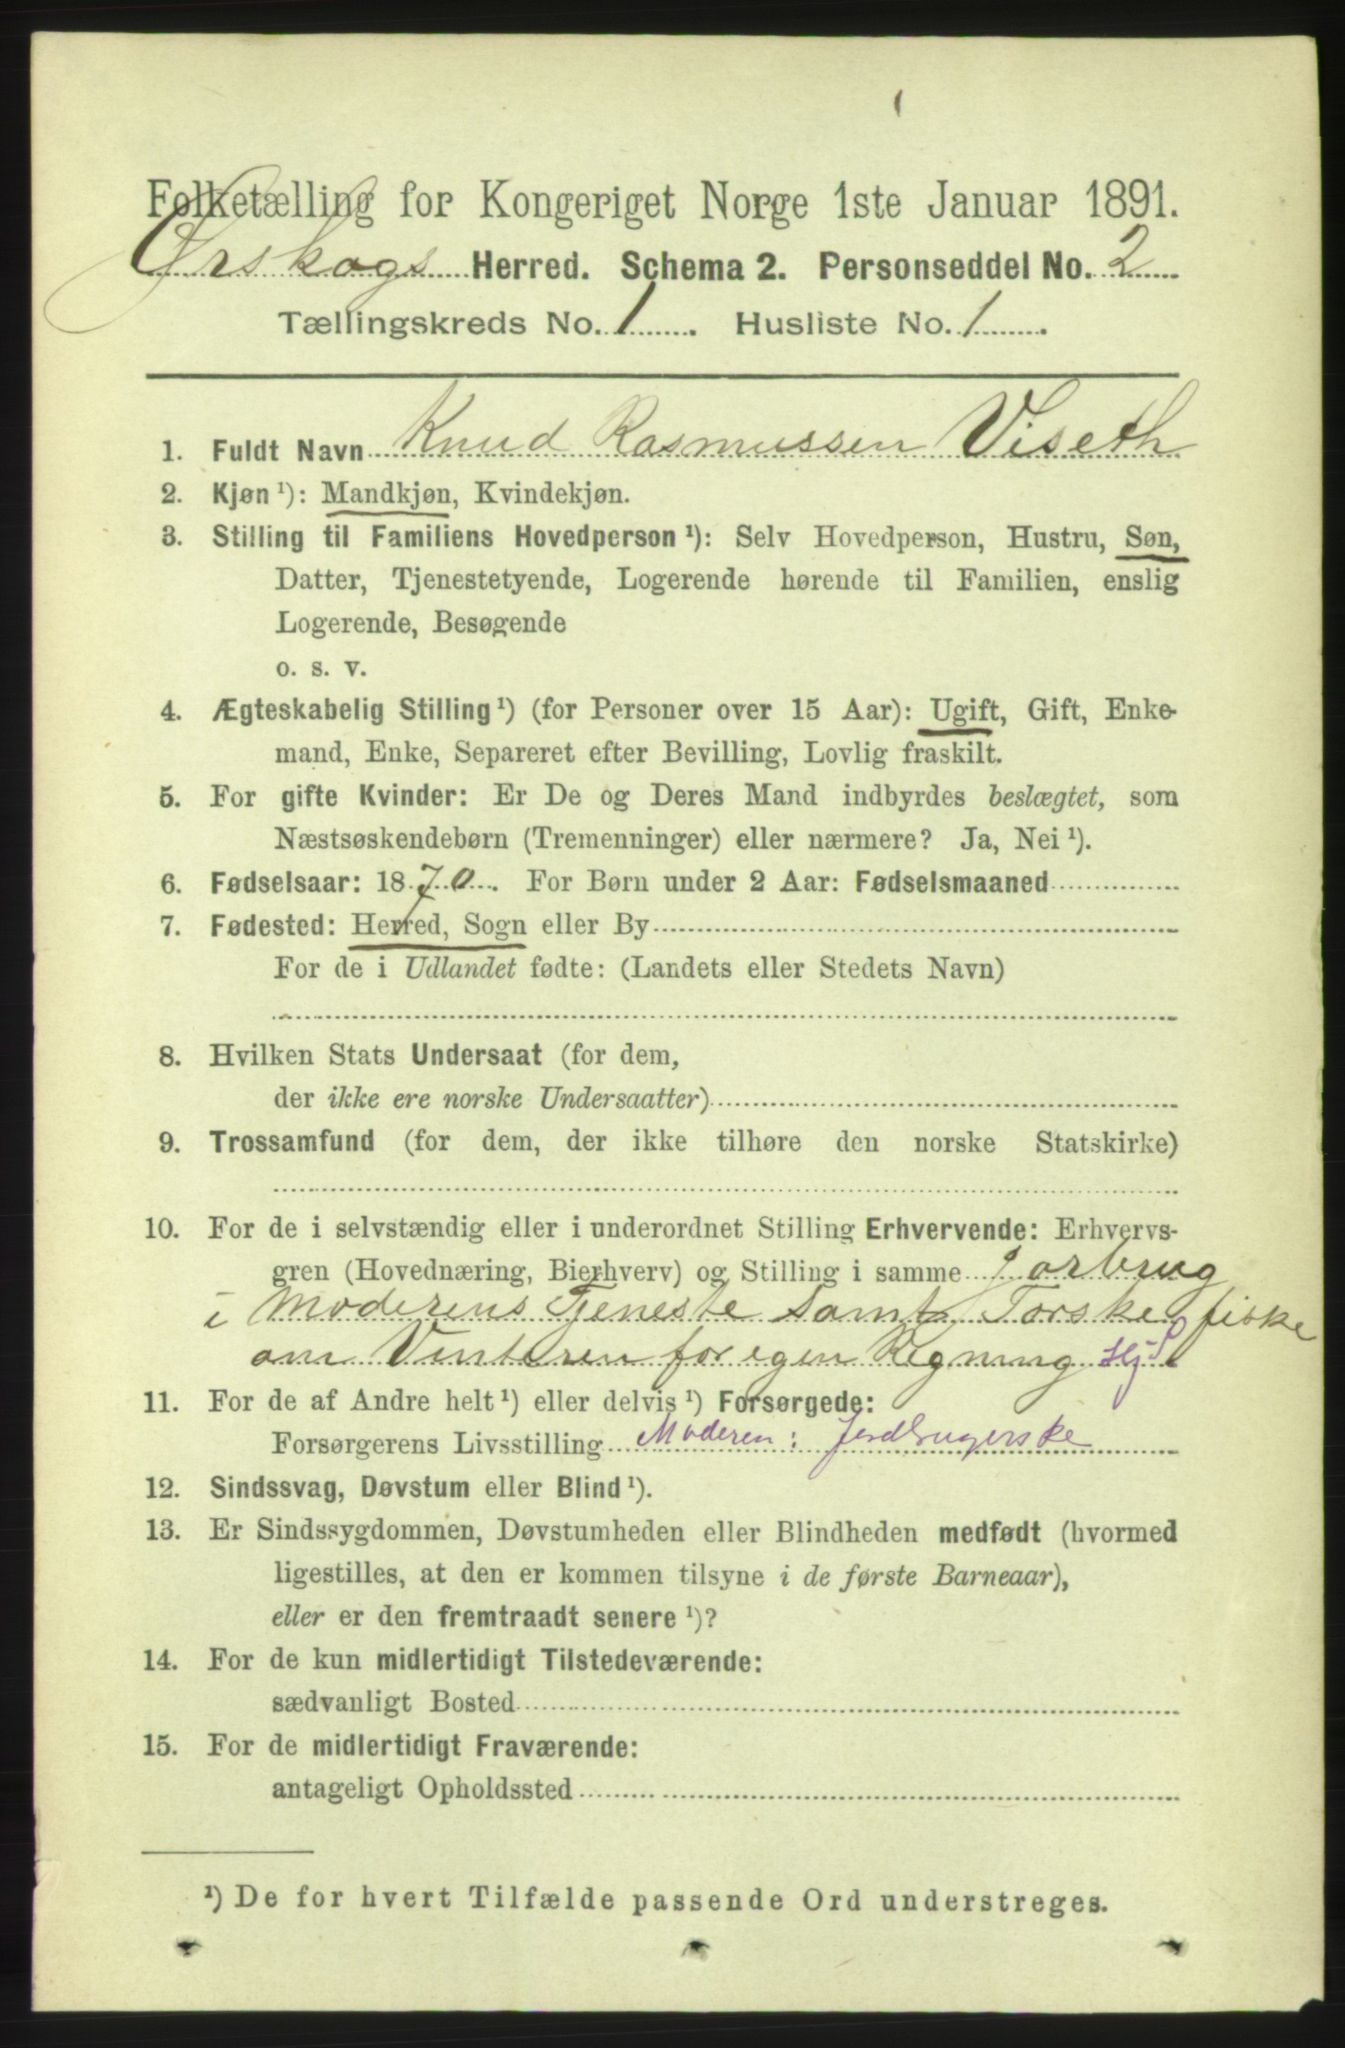 Folketælling for Kongeriget Norge 1ste Januar 1891.
Ørskogs Herred. Schema 2. Personseddel No. 2
Tællingskreds No. 1. Husliste No. 1.
1. Fuldt Navn Knud Rasmussen Viseth
2. Kjøn ¹): Mandkjøn, Kvindekjøn.
3. Stilling til Familiens Hovedperson ¹): Selv Hovedperson, Hustru, Søn,
Datter, Tjenestetyende, Logerende hørende til Familien, enslig
Logerende, Besøgende
o. s. v.
4. Ægteskabelig Stilling ¹) (for Personer over 15 Aar): Ugift, Gift, Enke-
mand, Enke, Separeret efter Bevilling, Lovlig fraskilt.
5. For gifte Kvinder: Er De og Deres Mand indbyrdes beslægtet, som
Næstsøskendebørn (Tremenninger) eller nærmere? Ja, Nei ¹).
6. Fødselsaar: 1870. For Børn under 2 Aar: Fødselsmaaned
7. Fødested: Herred, Sogn eller By
For de i Udlandet fødte: (Landets eller Stedets Navn)
8. Hvilken Stats Undersaat (for dem,
der ikke ere norske Undersaatter)
9. Trossamfund (for dem, der ikke tilhøre den norske Statskirke)
10. For de i selvstændig eller i underordnet Stilling Erhvervende: Erhvervs-
gren (Hovednæring, Bierhverv) og Stilling i samme Jorbrug
i Moderens Tjeneste samt Torske fiske
om Vinteren for egen Regning
11. For de af Andre helt ¹) eller delvis ¹) Forsørgede:
Forsørgerens Livsstilling Moderen: Jordbrugerske
12. Sindssvag, Døvstum eller Blind ¹).
13. Er Sindssygdommen, Døvstumheden eller Blindheden medfødt (hvormed
ligestilles, at den er kommen tilsyne i de første Barneaar),
eller er den fremtraadt senere ¹)?
14. For de kun midlertidigt Tilstedeværende:
sædvanligt Bosted
15. For de midlertidigt Fraværende:
antageligt Opholdssted
¹) De for hvert Tilfælde passende Ord understreges.